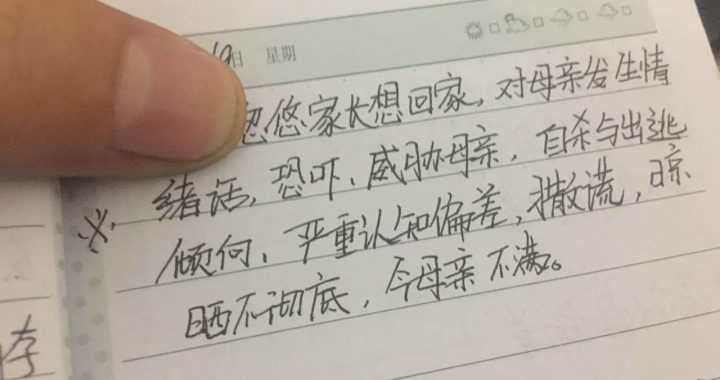 19日 星期
忽悠家长想回家，对母亲发生情
※绪话，恐吓、威胁母亲，自杀与出逃
倾向，严重认知偏差，撒谎，晾
晒不彻底，令母亲不满。